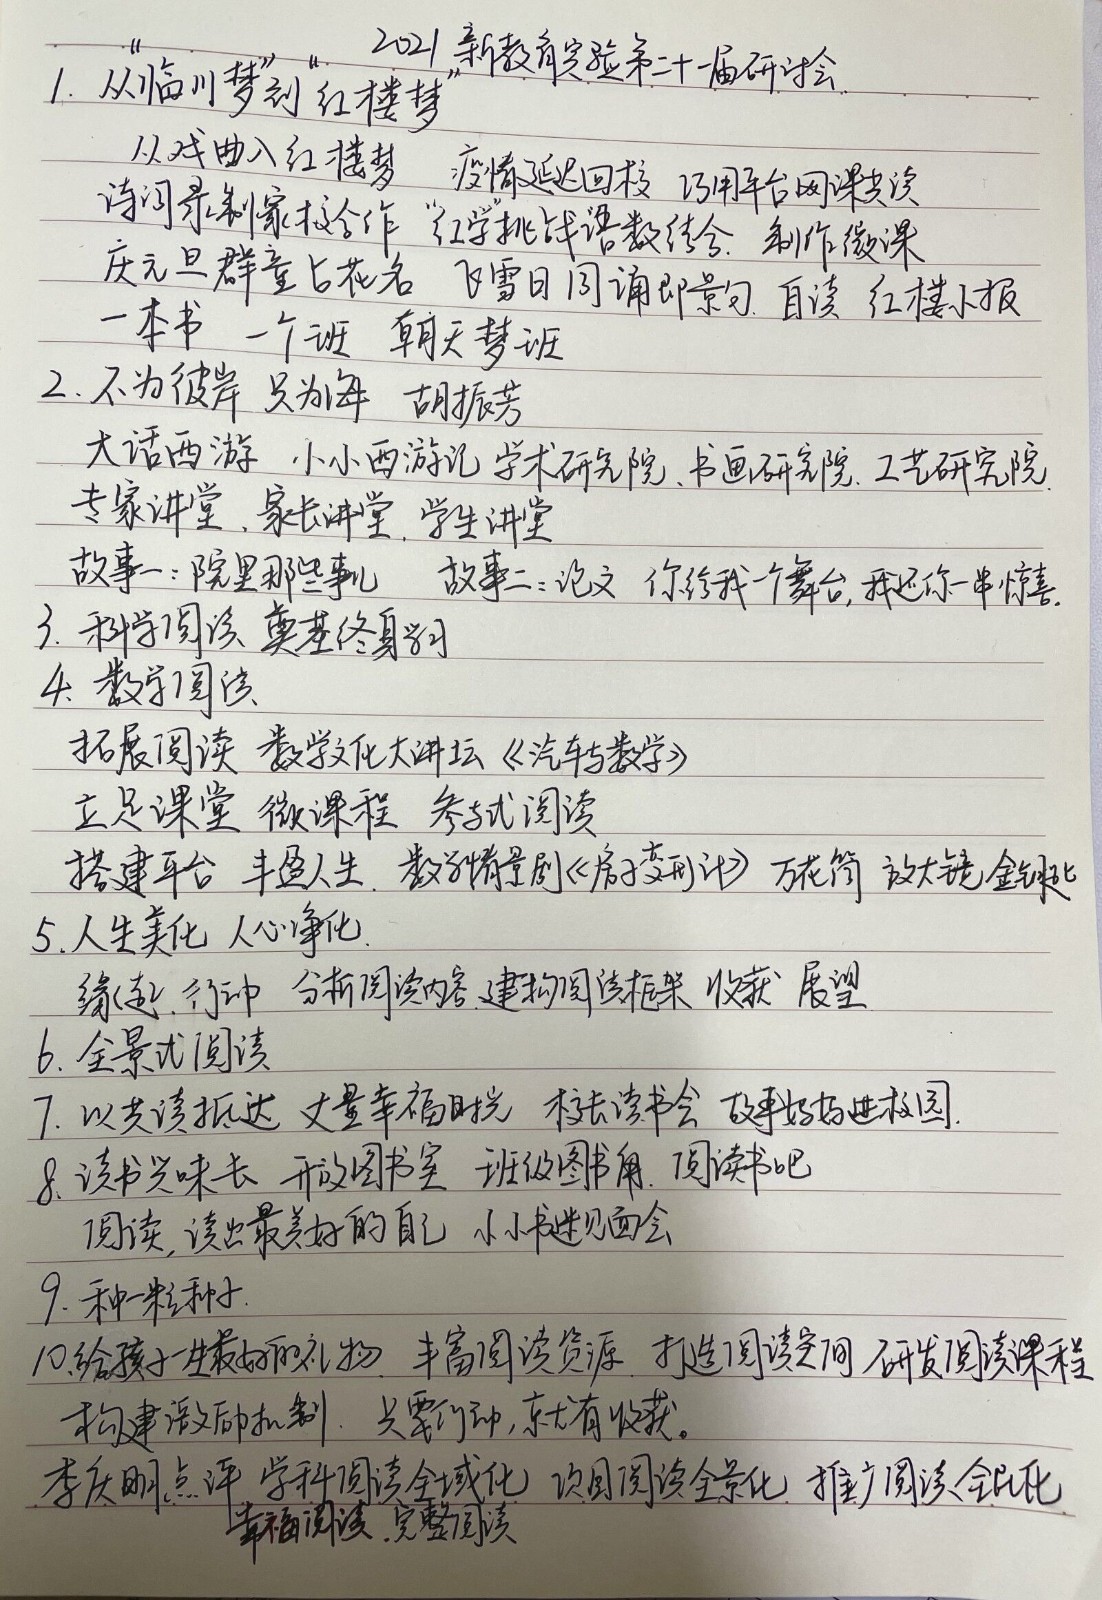 2021 新教育实验第二十一届研讨会
1. 从“临川梦”到“红楼梦”
从戏曲入红楼梦 疫情延迟回校 巧用平台网课共读
诗词录制家校合作 “红学”挑战语数结合. 制作微课
庆元旦群童占花名 飞雪日闯诵即景句. 自读 红楼小报
一本书 一个班 朝天梦班
2. 不为彼岸 只为海 胡振芳
大话西游 小小西游记 学术研究院、书画研究院. 工艺研究院.
专家讲堂、家长讲堂、学生讲堂
故事一:院里那些事儿 故事二:论文 你给我一个舞台,我还你一串惊喜.
3. 科学阅读 奠基终身学习
4. 数学阅读
拓展阅读 数学文化大讲坛《汽车与数学》
立足课堂 微课程 参与式阅读
搭建平台 丰盈人生. 数学情景剧《房子变形计》 万花筒 放大镜 金钥匙
5. 人生美化 人心净化.
缘起、行动 分析阅读内容 建构阅读框架 收获 展望
6. 全景式阅读
7. 以共读抵达 丈量幸福时光 校长读书会 故事妈妈进校园.
8. 读书兴味长 开放图书室 班级图书角. 阅读书吧
阅读,读出最美好的自己 小小书迷见面会
9. 种一粒种子.
10. 给孩子一生最好的礼物. 丰富阅读资源. 打造阅读空间 研发阅读课程
构建激励机制. 只要行动,就有收获。
李庆明点评 学科阅读全域化 项目阅读全景化 推广阅读全民化
幸福阅读、完整阅读